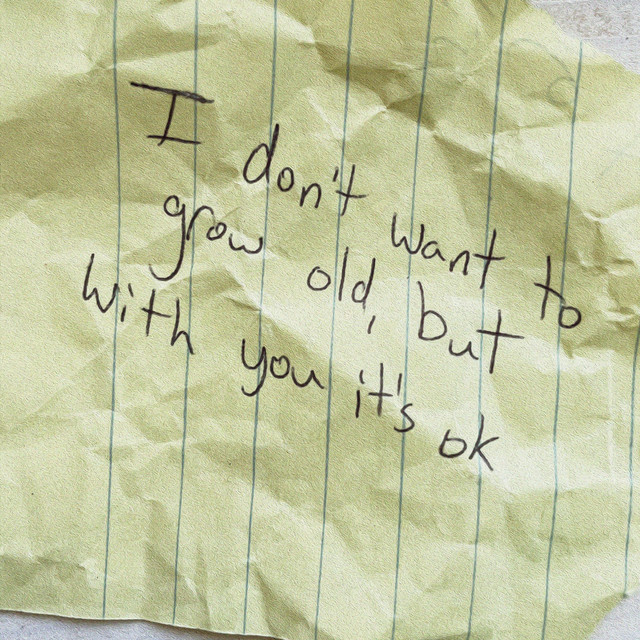 I don't want to
grow old, but
with you it's ok